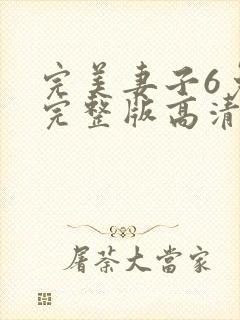 完美妻子6
完整版高清
屠荼大當家